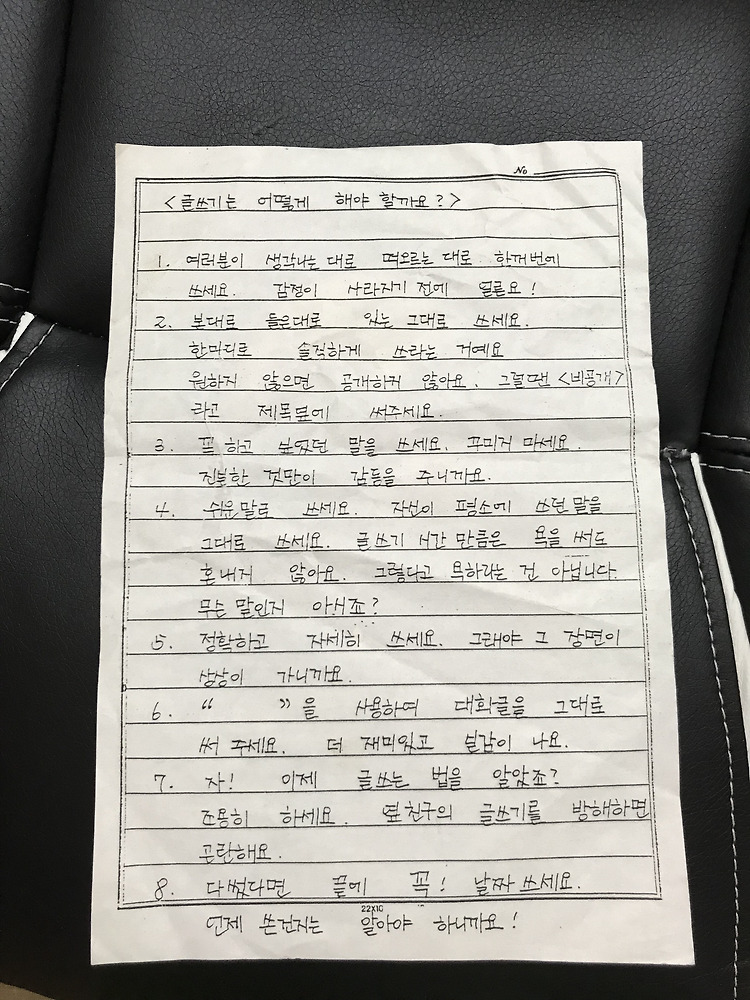 No
<글쓰기는 어떻게 해야 할까요?>
1. 여러분이 생각나는 대로 떠오르는 대로 한꺼번에
쓰세요. 감정이 사라지기 전에 얼른요!
2. 본대로 들은대로 있는 그대로 쓰세요.
한마디로 솔직하게 쓰라는 거예요
원하지 않으면 공개하지 않아요. 그럴땐 <비공개>
라고 제목옆에 써주세요.
3. 꼭 하고 싶었던 말을 쓰세요. 꾸미지 마세요.
진실한 것만이 감동을 주니까요.
4. 쉬운말로 쓰세요. 자신이 평소에 쓰던 말을
그대로 쓰세요. 글쓰기 시간 만큼은 욕을 써도
혼내지 않아요. 그렇다고 욕하라는 건 아닙니다.
무슨 말인지 아시죠?
5. 정확하고 자세히 쓰세요. 그래야 그 장면이
상상이 가니까요.
6. “ ”을 사용하여 대화글을 그대로
써 주세요. 더 재미있고 실감이 나요.
7. 자! 이제 글쓰는 법을 알았죠?
조용히 하세요. 옆친구의 글쓰기를 방해하면
곤란해요.
8. 다썼다면 끝에 꼭! 날짜 쓰세요.
22X10
언제 쓴건지는 알아야 하니까요!